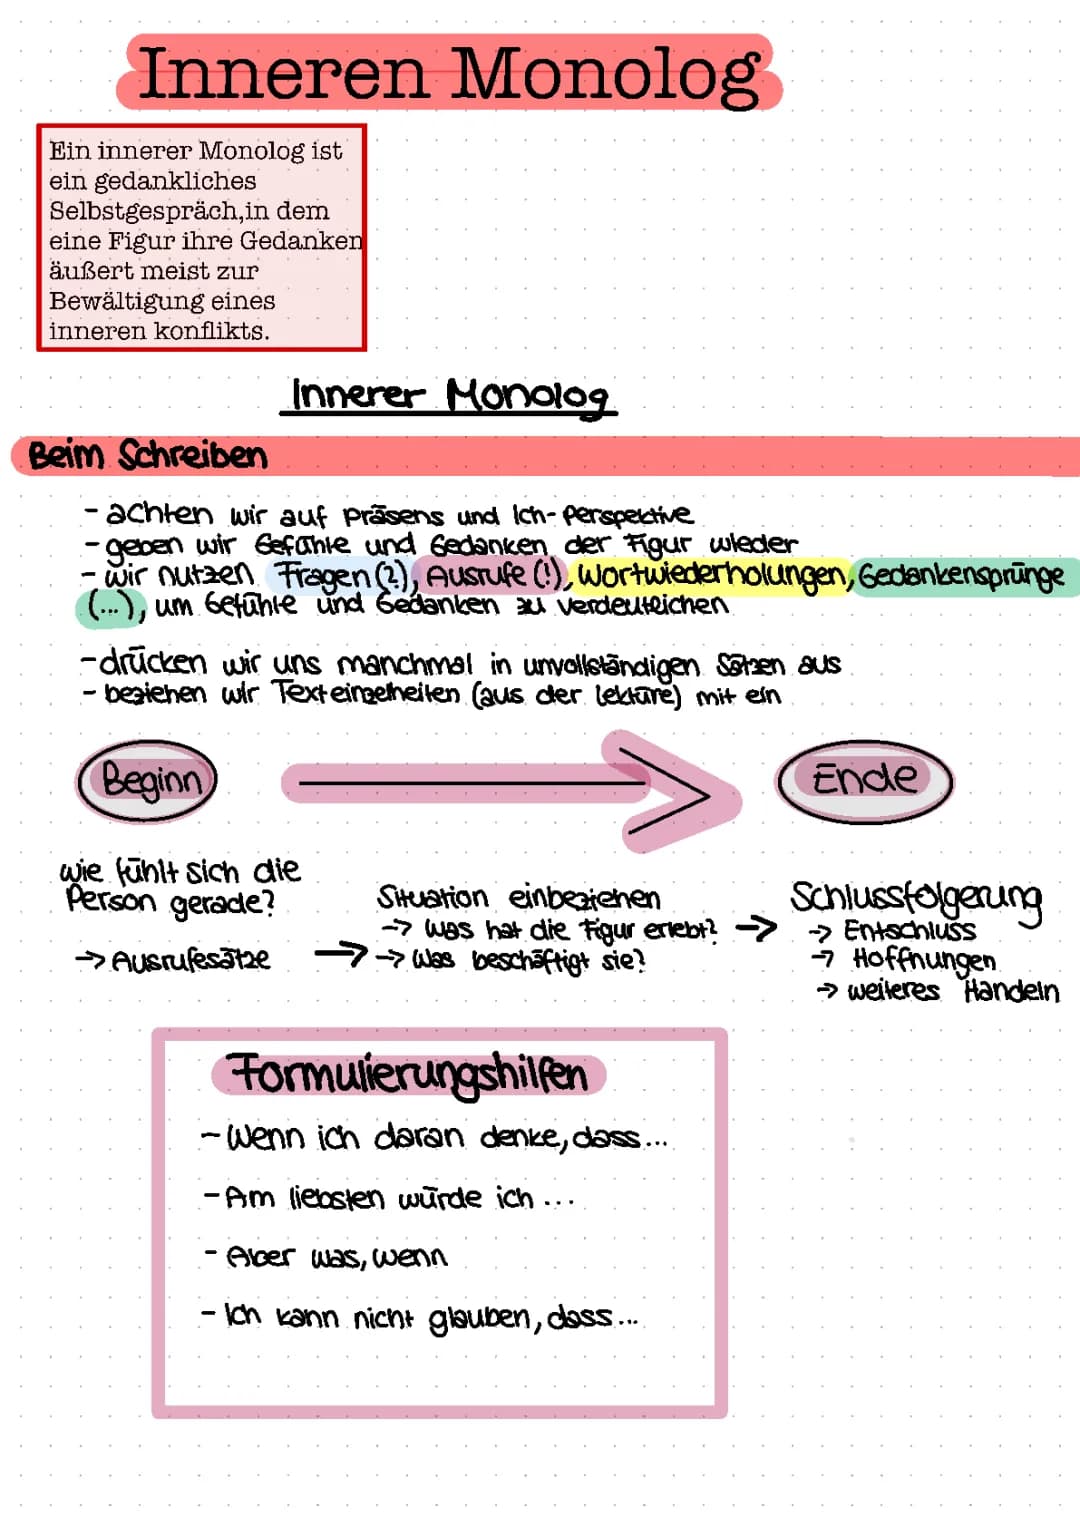 Inneren Monolog
Ein innerer Monolog ist
ein gedankliches
Selbstgespräch,in dem
eine Figur ihre Gedanken
äußert meist zur
Bewältigung eines
inneren konflikts.
Innerer Monolog
Beim Schreiben
- achten wir auf Präsens und Ich-Perspektive
- geben wir Gefühle und Gedanken der Figur wieder
- wir nutzen Fragen (?), Ausrufe (!), Wortwiederholungen, Gedankensprünge
(...), um Gefühle und Gedanken zu verdeutlichen
- drücken wir uns manchmal in unvollständigen Sätzen aus
- beziehen wir Texteinzelheiten (aus der Lektüre) mit ein
Beginn
Ende
wie fühlt sich die
Person gerade?
→ Ausrufesätze
→
Situation einbeziehen
→ Was hat die Figur erlebt?
→ Was beschäftigt sie?
→
Schlussfolgerung
→ Entschluss
→ Hoffnungen
→ weiteres Handeln
Formulierungshilfen
- Wenn ich daran denke, dass...
- Am liebsten würde ich ...
- Aber was, wenn
- Ich kann nicht glauben, dass...